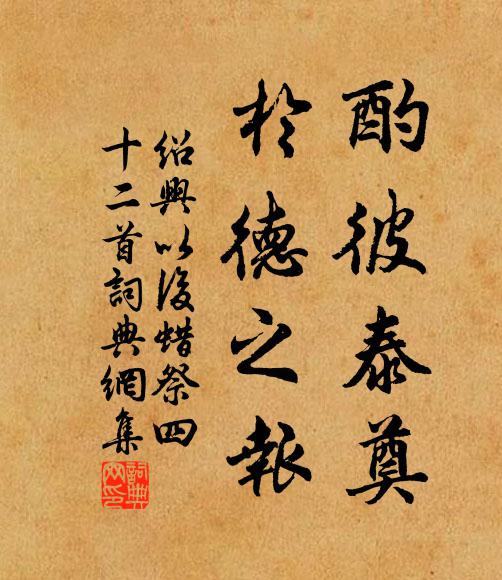 酌彼泰奠
於德之報
绍興以後蜡祭四
十二首詞典網集
詞典網印